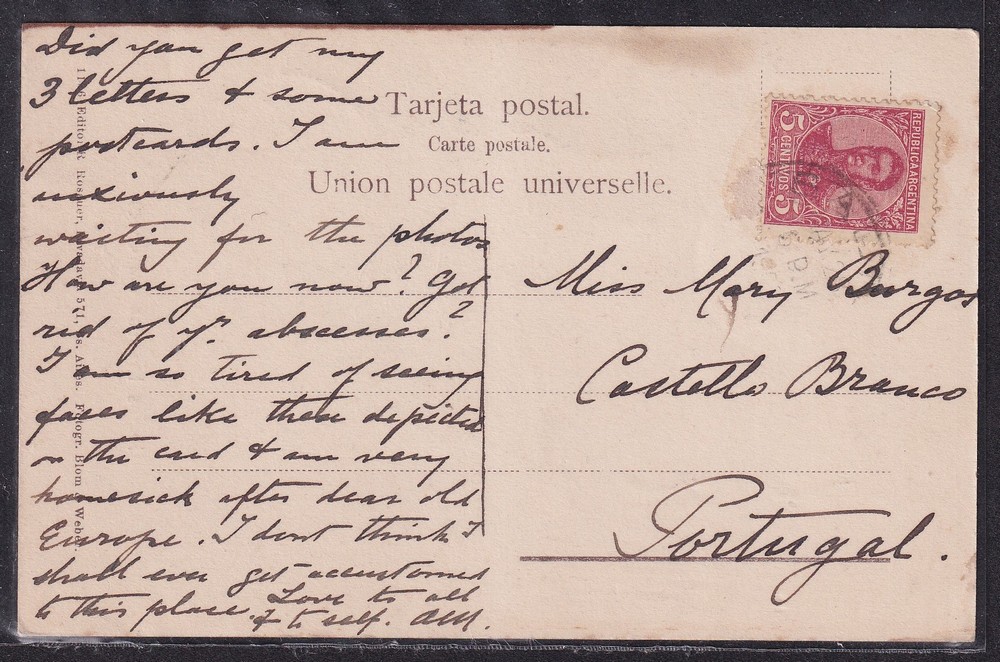 Did you get my
3 letters & some
postcards. I am
anxiously
waiting for the photos
How are you now? Got
rid of yr abscesses?
I am so tired of seeing
faces like these depicted
on the card & am very
homesick after dear old
Europe. I dont think I
shall ever get accustomed
to this place. Love to all
& to self.
Tarjeta postal.
Carte postale.
Union postale universelle.
REPUBLICA ARGENTINA
5 CENTAVOS 5
Miss Mary Burgos
Castello Branco
Portugal.
Editor R. Rosauer, Rivadavia 571, Bs. Aires. Fotogr. Blom Weber.